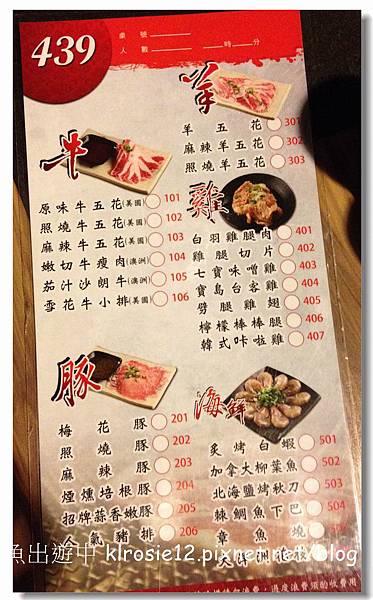 439
桌號
人數 時 分
牛
原味牛五花(美國) 101
照燒牛五花(美國) 102
麻辣牛五花(美國) 103
嫩切牛瘦肉(澳洲) 104
茄汁沙朗牛(澳洲) 105
雪花牛小排(美國) 106
豚
梅花豚 201
照燒豚 202
麻辣豚 203
煙燻培根豚 204
招牌蒜香嫩豚 205
人氣豬排 206
羊
羊五花 301
麻辣羊五花 302
照燒羊五花 303
雞
白羽雞腿肉 401
雞腿切片 402
七寶味噌雞 403
寶島台客雞 404
劈腿雞翅 405
檸檬棒棒腿 406
韓式咔啦雞 407
海鮮
炙烤白蝦 501
加拿大柳葉魚 502
北海鹽烤秋刀 503
棘鯛魚下巴 504
章魚燒
魚出遊中 klrosie12.pixnet.net/blog